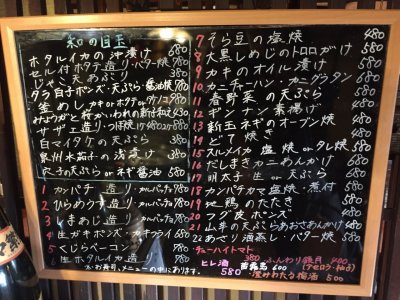 和の目玉
ホタルイカの沖漬け 680
セル付ホタテ造り・バター焼 780
じゃこ天あぶり 380
タラ白子ポンズ・天ぷら・醤油焼 780
釜めし カキorホタテorタケノコ 780
みょうがと桜かいわれの新甘和え 430
サザエ造り・つぼ焼 480
白マイタケの天ぷら 530
泉州水茄子の浅漬け 580
穴子の天ぷらorネギ醤油 680
1 カンパチ造り・カルパッチョ 780
2 ひらめうす造り・カルパッチョ 780
3 しまあじ造り・カルパッチョ 980
4 生ガキポンズ・カキフライ 680
5 くじらベーコン 780
6 生ホタルイカ造り 580
お寿司、メニューの中にあります。
7 そら豆の塩焼 480
8 大黒しめじのトロロがけ 480
9 カキのオイル漬け 480
10 カニチーハン・カニグラタン 680
11 春野菜の天ぷら 580
12 ギンナン素揚げ 480
13 新玉ネギのオーブン焼 480
14 どて焼き 480
15 スルメイカ塩焼orタレ焼 580
16 だしまきカニあんかけ 680
17 明太子 生or天ぷら 580
18 カンパチカマ塩焼・煮付 580
19 地鶏のたたき 580
20 フグ皮ポンズ 580
21 山芋の天ぷらあおさあんかけ 580
22 あさり酒蒸し・バター焼 580
チューハイトマト 380 ふんわり鏡月 480
ヒレ酒 580 600 (アセロラ・ゆず)
澄みわたる梅酒 500